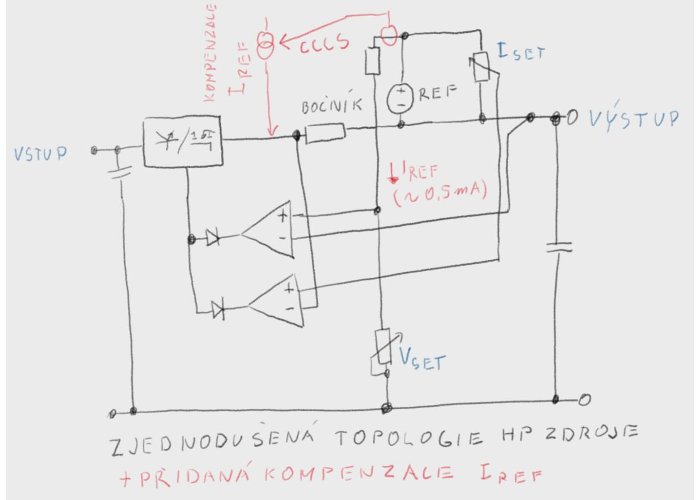 KOMPENZALE
I REF
CCCS
I SET
BOČNÍK
+
-
REF
VÝSTUP
VSTUP
I REF
(~0,5mA)
+
-
+
-
V SET
ZJEDNODUŠENÁ TOPOLOGIE HP ZDROJE
+ PŘIDANÁ KOMPENZALE I REF